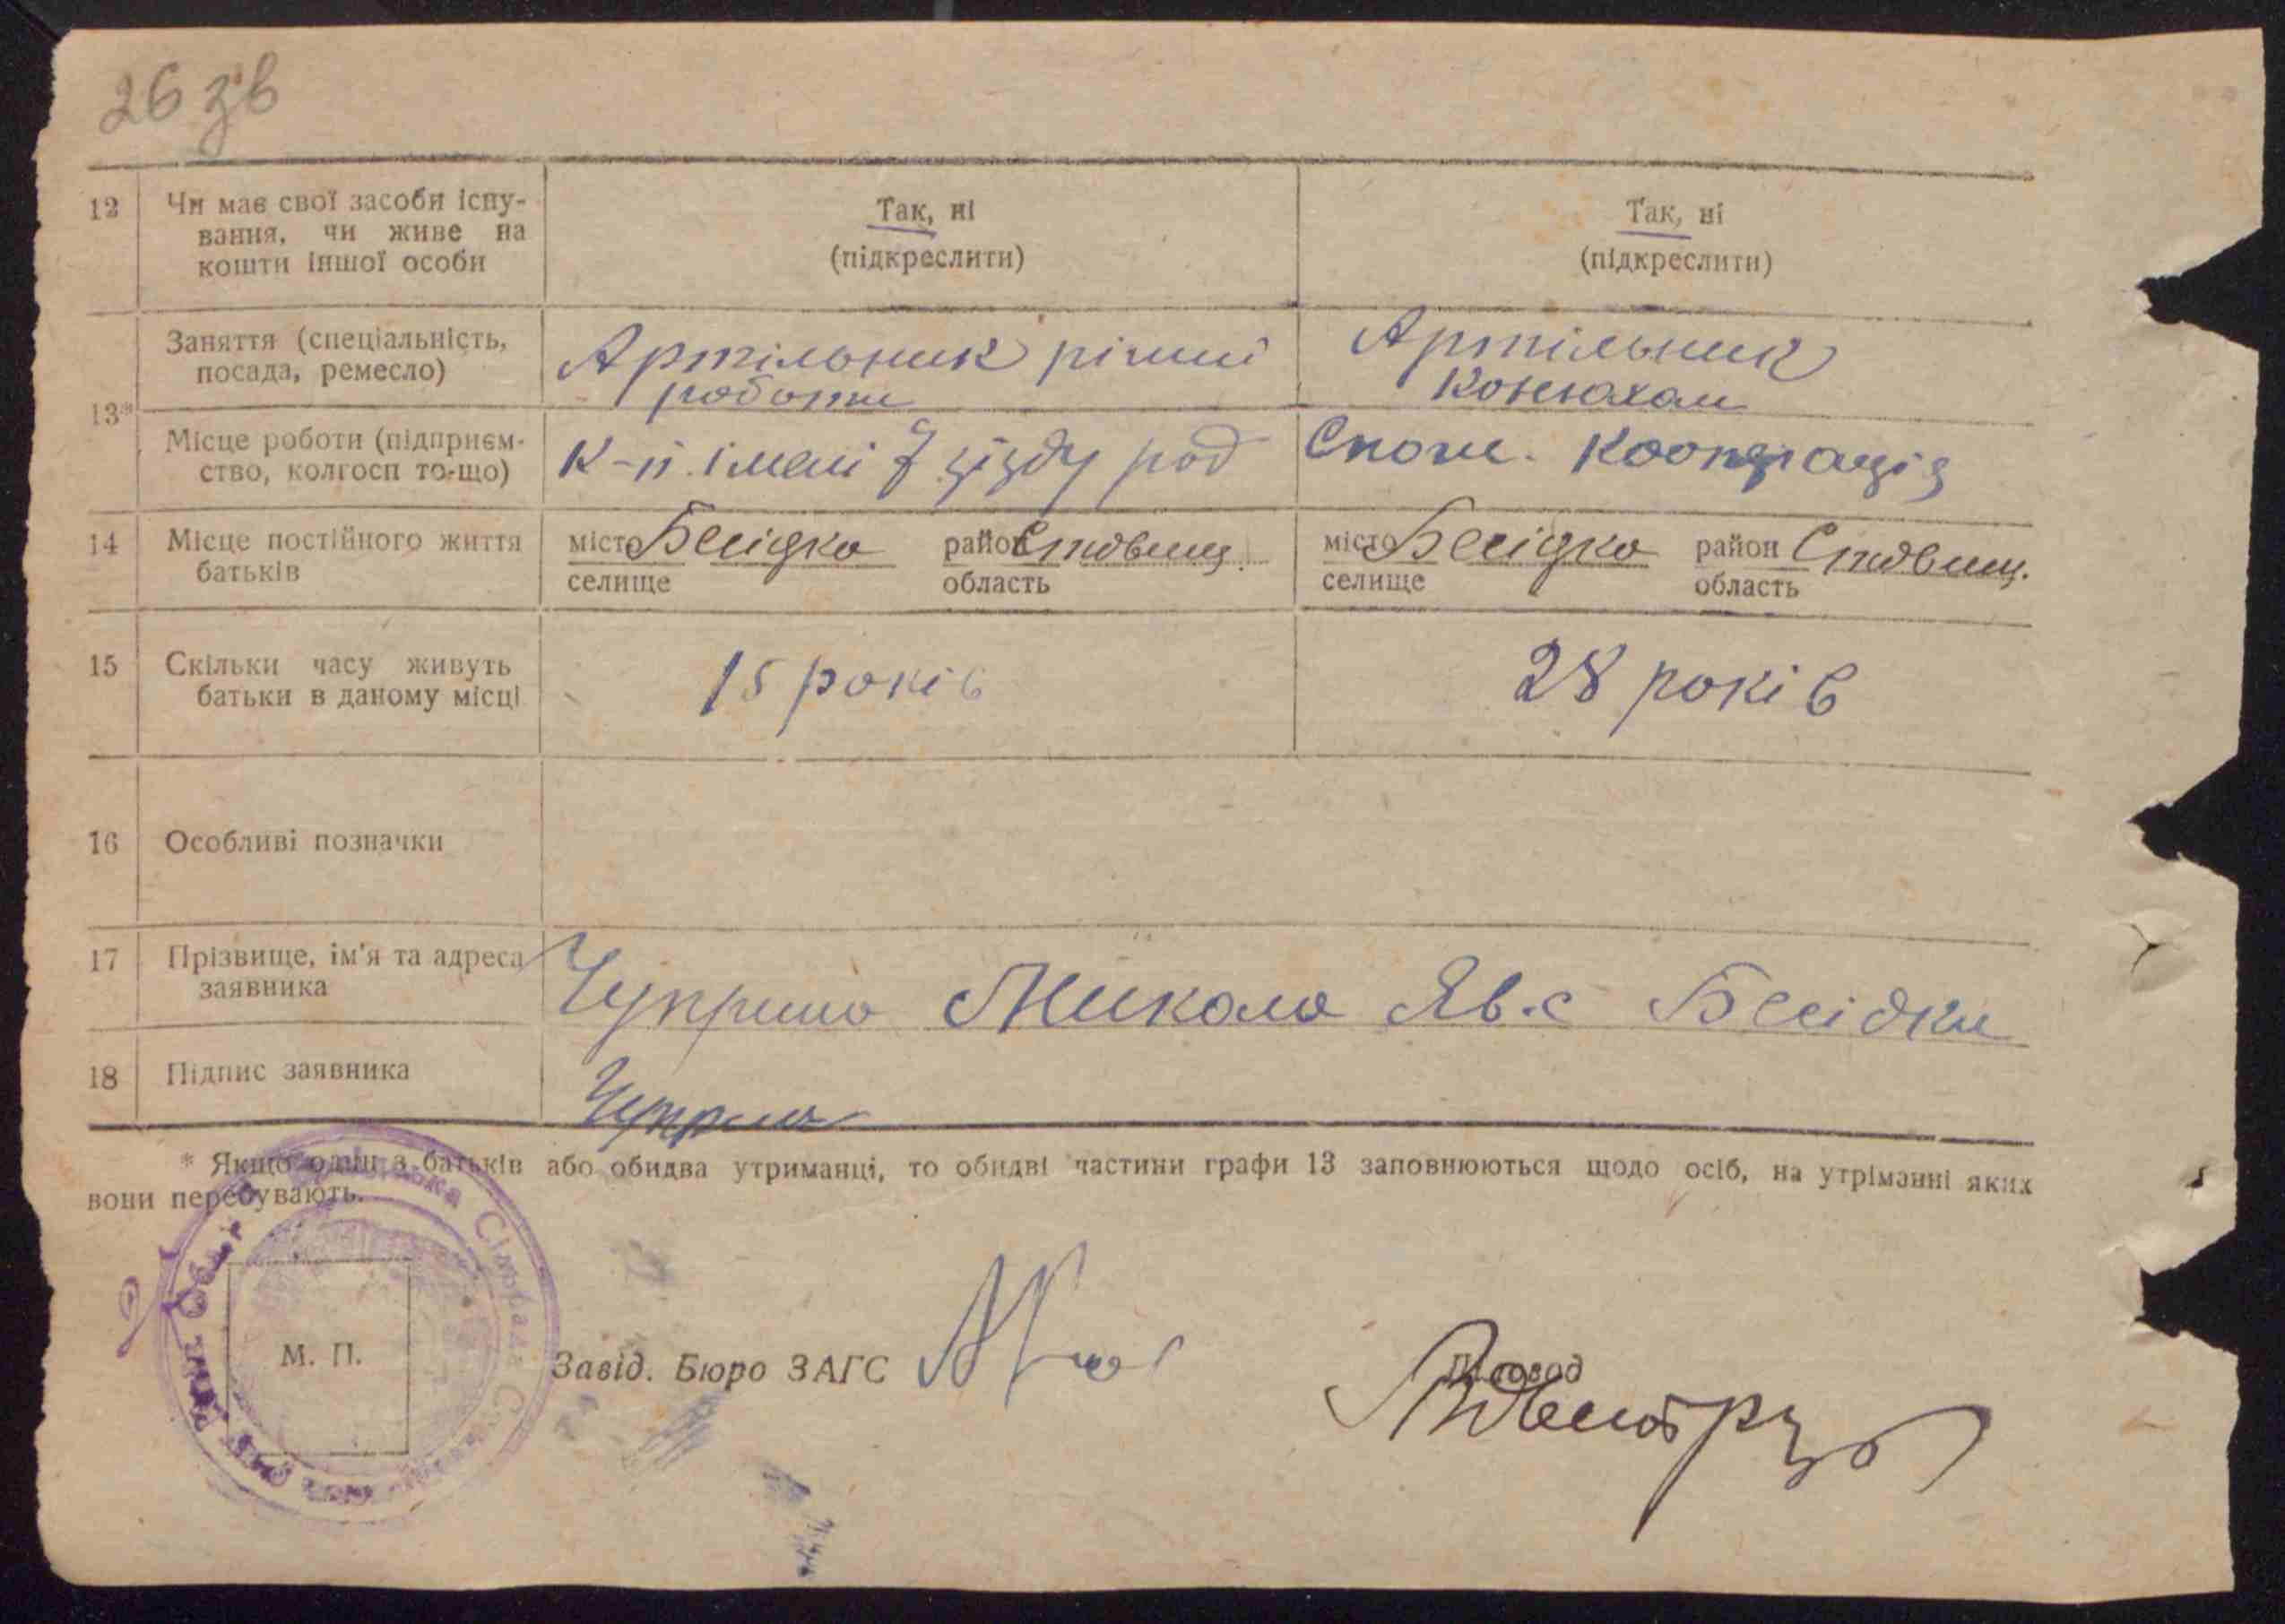 26 зв
12 Чи має свої засоби існу-
вання, чи живе на
кошти іншої особи
Так, ні
(підкреслити)
Так, ні
(підкреслити)
13*
Заняття (спеціальність,
посада, ремесло)
Артільник різний
роботи
Артільник
Конюхом
Місце роботи (підприєм-
ство, колгосп то-що)
К-п. імені 7 зізду рад
Спож. Кооперація
14 Місце постійного життя
батьків
місто Бесідка район Ставищ.
селище область
місто Бесідка район Ставищ.
селище область
15 Скільки часу живуть
батьки в даному місці
15 років
28 років
16 Особливі позначки
17 Прізвище, ім'я та адреса
заявника
Чуприна Микола Яв. с Бесідки
18 Підпис заявника
Чуприна
* Якщо один з батьків або обидва утриманці, то обидві частини графи 13 заповнюються щодо осіб, на утріманні яких
вони перебувають.
М. П.
Завід. Бюро ЗАГС
Діловод